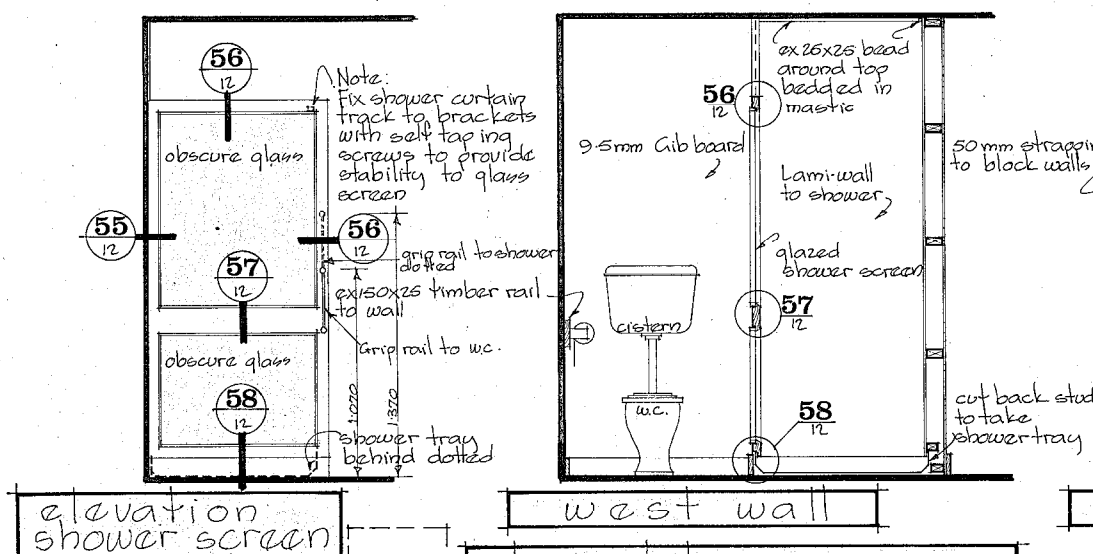 56
12
Note:
Fix shower curtain
track to brackets
with self taping
screws to provide
stability to glass
screen
obscure glass
55
12
56
12
grip rail to shower
dotted
57
12
ex150x25 timber rail
to wall
Grip rail to w.c.
obscure glass
58
12
1·020
1·320
shower tray
behind dotted
elevation
shower screen
ex 25x25 bead
around top
bedded in
mastic
56
12
9·5mm Gib board
50mm strapping
to block walls
Lami-wall
to shower
glazed
shower screen
57
12
cistern
w.c.
58
12
cut back stud
to take
shower tray
west wall